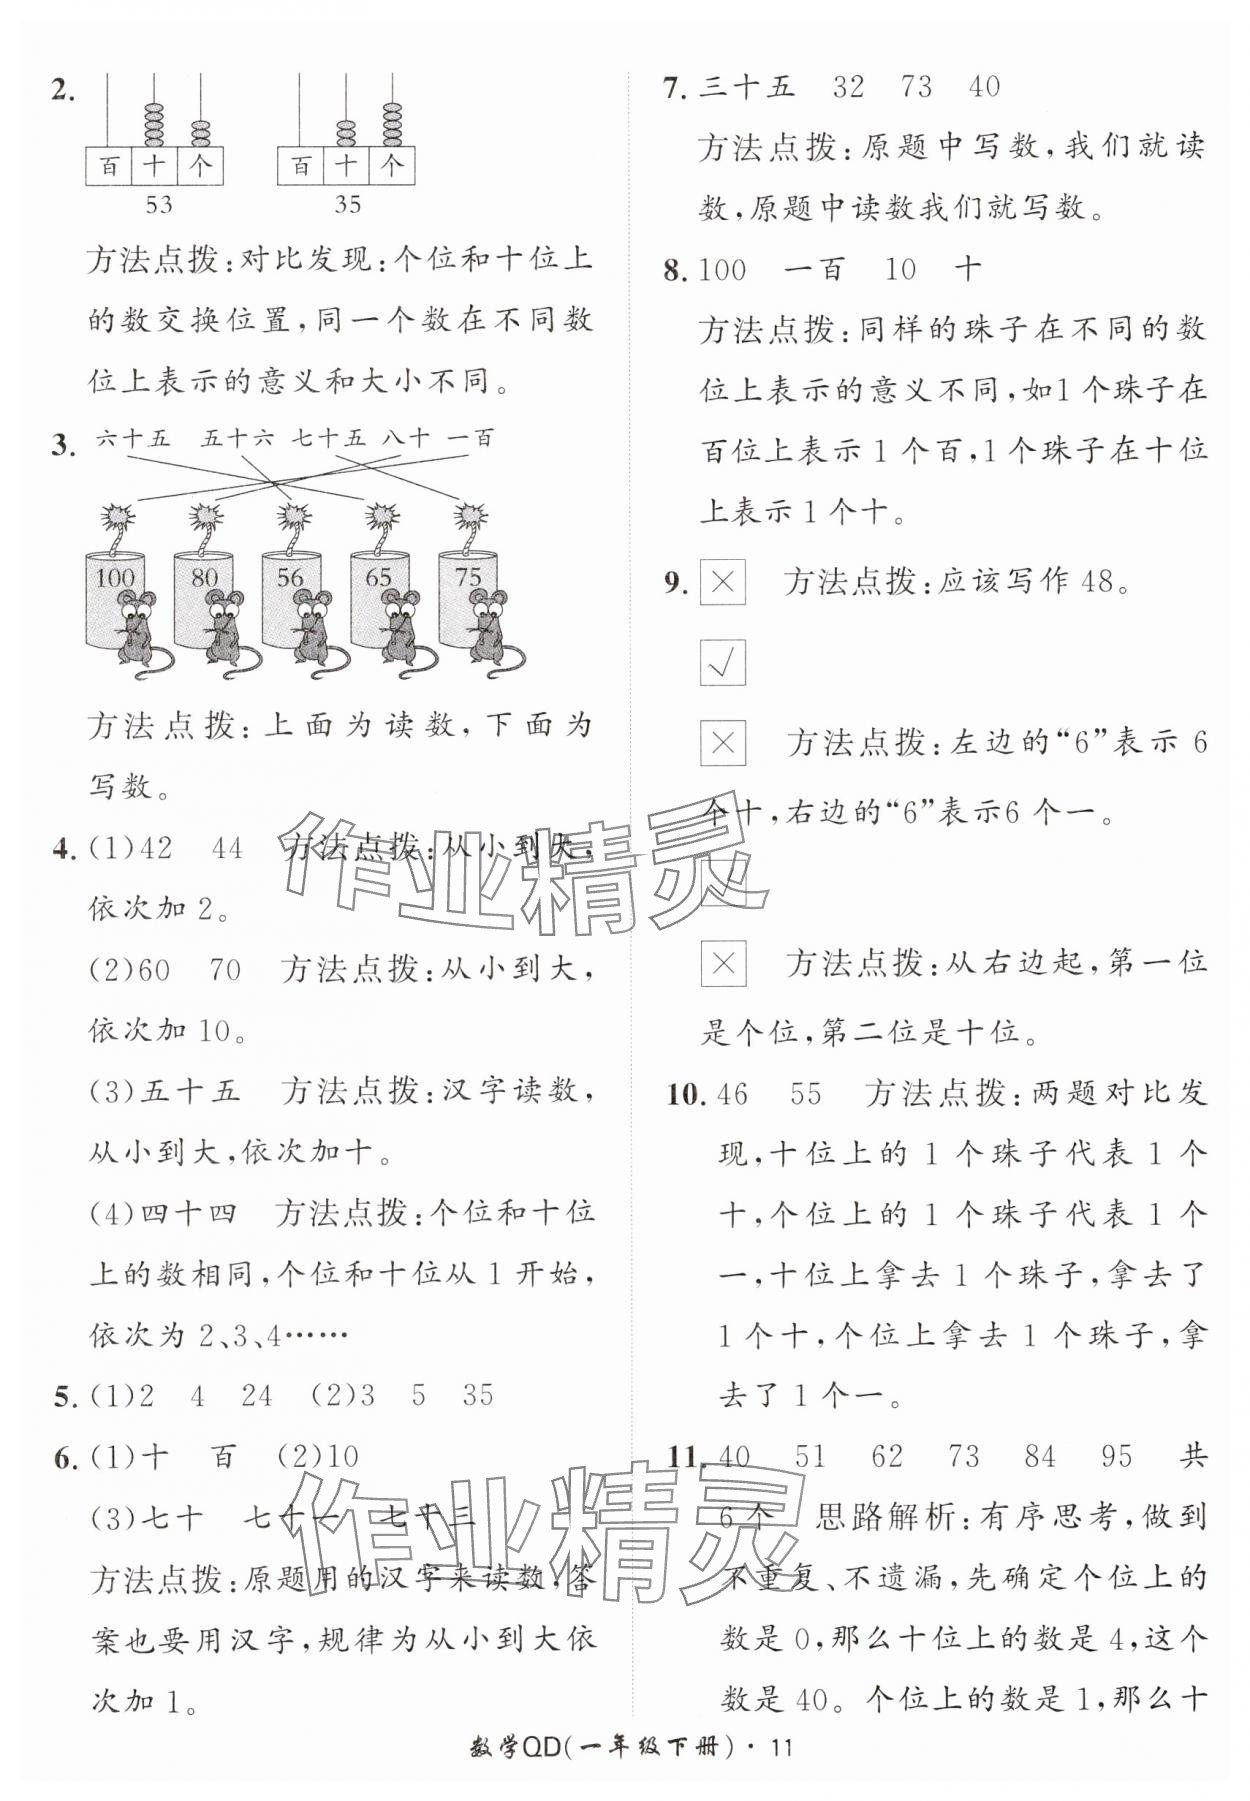 2.
百 十 个
53
百 十 个
35
方法点拨:对比发现:个位和十位上
的数交换位置,同一个数在不同数
位上表示的意义和大小不同。
3. 六十五 五十六 七十五 八十 一百
100 80 56 65 75
方法点拨:上面为读数,下面为
写数。
4. (1)42 44 方法点拨:从小到大,
依次加2。
(2)60 70 方法点拨:从小到大,
依次加10。
(3)五十五 方法点拨:汉字读数,
从小到大,依次加十。
(4)四十四 方法点拨:个位和十位
上的数相同,个位和十位从1开始,
依次为2、3、4……
5. (1)2 4 24 (2)3 5 35
6. (1)十 百 (2)10
(3)七十 七十一 七十三
方法点拨:原题用的汉字来读数,答
案也要用汉字,规律为从小到大依
次加1。
7. 三十五 32 73 40
方法点拨:原题中写数,我们就读
数,原题中读数我们就写数。
8. 100 一百 10 十
方法点拨:同样的珠子在不同的数
位上表示的意义不同,如1个珠子在
百位上表示1个百,1个珠子在十位
上表示1个十。
9. × 方法点拨:应该写作48。
√
× 方法点拨:左边的“6”表示6
个十,右边的“6”表示6个一。
√
× 方法点拨:从右边起,第一位
是个位,第二位是十位。
10. 46 55 方法点拨:两题对比发
现,十位上的1个珠子代表1个
十,个位上的1个珠子代表1个
一,十位上拿去1个珠子,拿去了
1个十,个位上拿去1个珠子,拿
去了1个一。
11. 40 51 62 73 84 95 共
6个 思路解析:有序思考,做到
不重复、不遗漏,先确定个位上的
数是0,那么十位上的数是4,这个
数是40。个位上的数是1,那么十
数学QD(一年级下册)·11
作业精灵
作业精灵